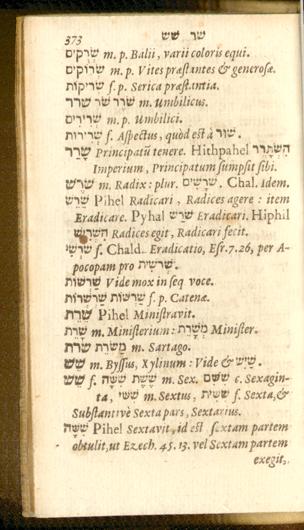 373 שר שש
שְׂרֻקִים m. p. Balii, varii coloris equi.
שְׂרוּקִים m. p. Vites præstantes & generosæ.
שְׂרִיקוֹת f. p. Serica præstantia.
שֹׁרֶר שׁר שׁרר m. Umbilicus.
שְׁרִירִים m. p. Umbilici.
שְׁרִירוּת f. Aspectus, quòd est à שׁוּר.
שָׂרַר Principatū tenere. Hithpahel הִשְׂתָּרֵר
Imperium, Principatum sumpsit sibi.
שֹׁרֶשׁ m. Radix: plur. שָׁרָשִׁים. Chal. Idem.
שֵׁרֵשׁ Pihel Radicari, Radices agere: item
Eradicare. Pyhal שֹׁרַשׁ Eradicari. Hiphil
הִשְׁרִישׁ Radices egit, Radicari fecit.
שְׁרֹשִׁי f. Chald. Eradicatio, Esr. 7. 26, per A-
pocopam pro שְׁרֹשִׁית.
שַׁרְשׁוֹת Vide mox in seq. voce.
שַׁרְשְׁרוֹת שַׁרְשׁוֹת f. p. Catenæ.
שֵׁרֵת Pihel Ministravit.
שָׁרֵת m. Ministerium: מְשָׁרֵת Minister.
מַשְׂרֵת שׂרת m. Sartago.
שֵׁשׁ m. Byssus, Xylinum: Vide & שַׁיִשׁ.
שֵׁשׁ f. שֵׁשֶׁת שִׁשָּׁה m. Sex. שִׁשִּׁים c. Sexagin-
ta, שִׁשִּׁי m. Sextus, שִׁשִּׁית f. Sexta, &
Substantivè Sexta pars, Sextarius.
שִׁשָּׁה Pihel Sextavit, id est sextam partem
obtulit, ut Ezech. 45. 13. vel Sextam partem
exegit,